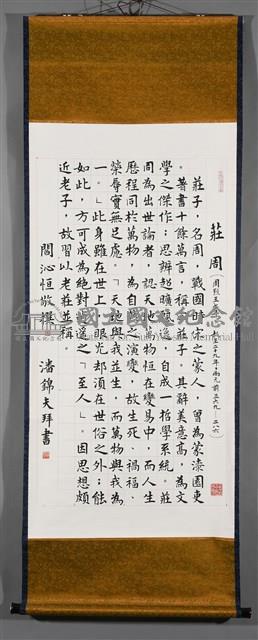 莊周
莊子，名周，戰國時宋之蒙人，曾為蒙漆園吏
。著書十餘萬言，稱莊子，其辭美意高，為文
學之傑作；思辨超曠空逸，自成一哲學系統。莊
周為出世論者，認天地萬物恒在變易中，而人生
歷程同於萬物，為自然之演變，故生死、禍福、
榮辱實無足處。「天地與我並生，而萬物與我為
一。」此身雖在世上，眼光却須在世俗之外；能
如此，方可成為絕對逍遙之「至人」。因思想頗
近老子，故習以老莊並稱。
閻沁恒敬撰
潘錦夫拜書
國立國父紀念館